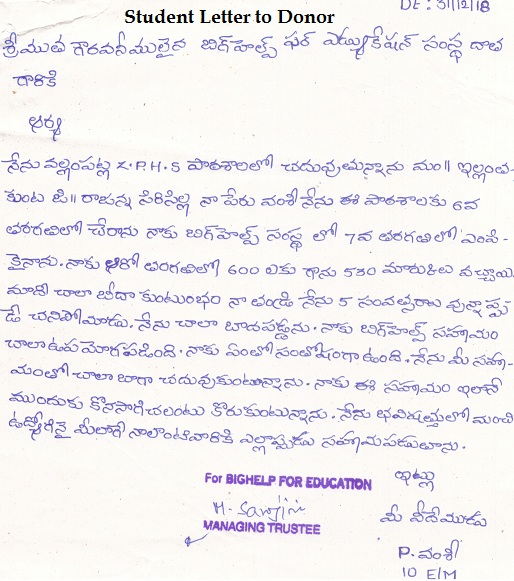 DE : 31/12/18
Student Letter to Donor
శ్రీయుత గౌరవనీములైన బిగ్‌హెల్ప్ ఫర్ ఎడ్యుకేషన్ సంస్థ దాత
గారికి
ఆర్య
నేను వల్లంపట్ల Z.P.H.S పాఠశాలలో చదువుతున్నాను మం॥ ఇల్లంత
కుంట జి॥ రాజన్న సిరిసిల్ల నా పేరు వంశీ నేను ఈ పాఠశాలకు 6వ
తరగతిలో చేరాను నాకు బిగ్‌హెల్ప్ సంస్థ లో 7వ తరగతిలో ఎంపి-
కైనాను. నాకు తరగతిలో 600 లకు గాను 530 మార్కులు వచ్చాయి
మాది చాలా బీదా కుంటుంభం నా తండ్రి నేను 5 సంవత్సరాలు వున్నాప్పు
డే చనిపోమాడు. నేను చాలా బాదపడ్డను. నాకు బిగ్‌హెల్ప్ సహామం
చాలా ఉపమోగపడింది. నాకు ఏంతో సంతోషంగా ఉంది. నేను మీ సహా-
మంతో చాలా బాగా చదువుకుంటున్నాను. నాకు ఈ సహామం ఇలానే
ముందుకు కొనసాగించలంటు కొరుకుంటున్నాను. నేను భవిషత్తులో మంచి
ఉద్యోగినై మీలాగే నాలాంటివారికి ఎల్లాప్పుడు సహామపడుతాను.
ఇట్లు
For BIGHELP FOR EDUCATION
MANAGING TRUSTEE
మీ విదేముడు
P. వంశీ
10 E/M